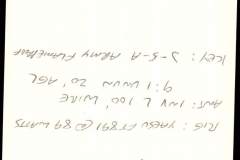 RIG: YAESU FT891 @ 89 WATTS
ANT: INV L 100' WIRE
9:1 UNUN 20' AGL
KEY: J-5-A ARMY FLAMEPROOF